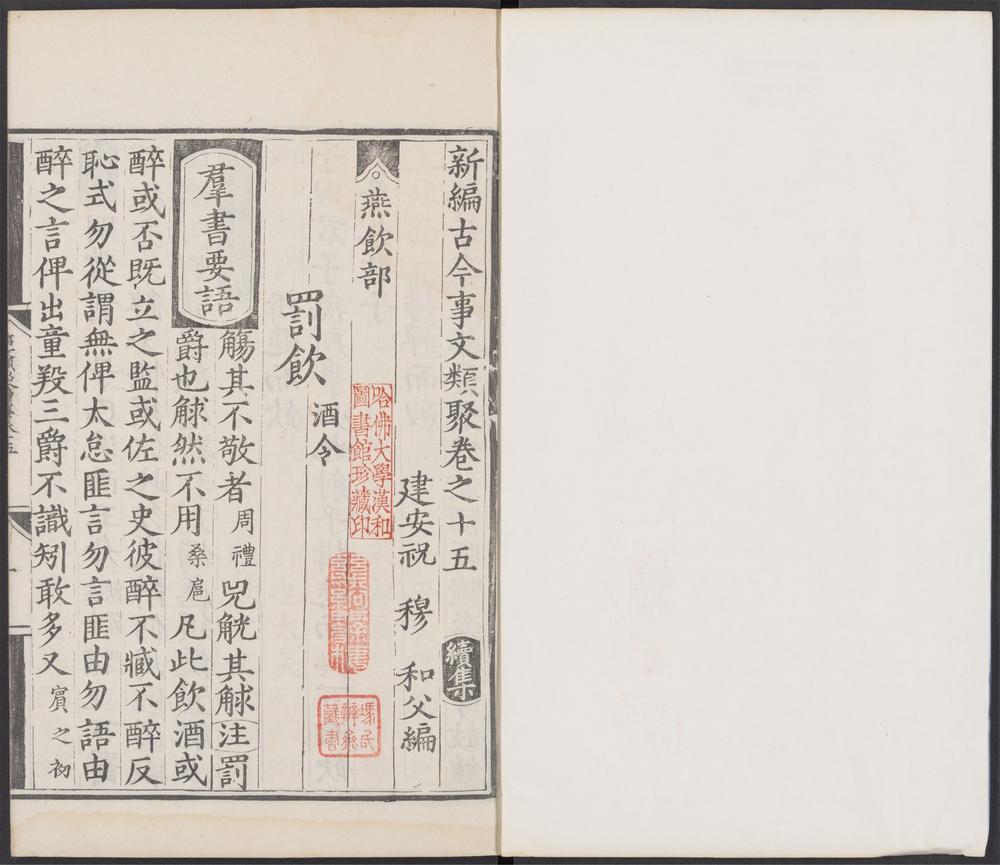 新編古今事文類聚卷之十五 續集
建安祝 穆 和父編
燕飲部
罰飲 酒令
哈佛大學漢和
圖書館珍藏印
群書要語
觴其不敬者 周禮 兕觥其觩 注 罰
爵也觩然不用 桑扈 凡此飲酒或
醉或否既立之監或佐之史彼醉不臧不醉反
恥式勿從謂無俾大怠匪言勿言匪由勿語由
醉之言俾出童羖三爵不識矧敢多又 賓之初